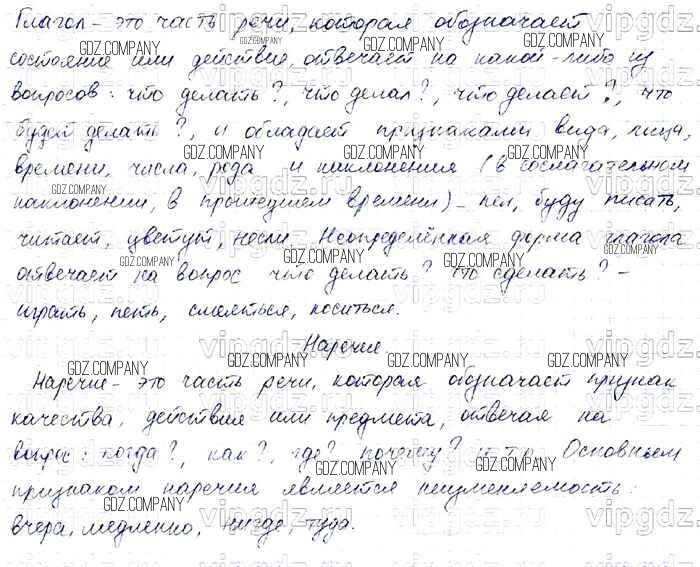 Глагол – это часть речи, которая обозначает
состояние или действие, отвечает на какой-либо из
вопросов: что делать?, что делал?, что делает?, что
будет делать?, и обладает признаками вида, лица,
времени, числа, рода и наклонения (в сослагательном
наклонении, в прошедшем времени) – пел, буду писать,
читает, цветут, несли. Неопределённая форма глагола
отвечает на вопрос что делать? что сделать? –
играть, петь, смеяться, коситься.
Наречие
Наречие – это часть речи, которая обозначает признак
качества, действия или предмета, отвечая на
вопрос: когда?, как?, где? почему? и т.р. Основным
признаком наречия является неизменяемость:
вчера, медленно, нигде, туда.